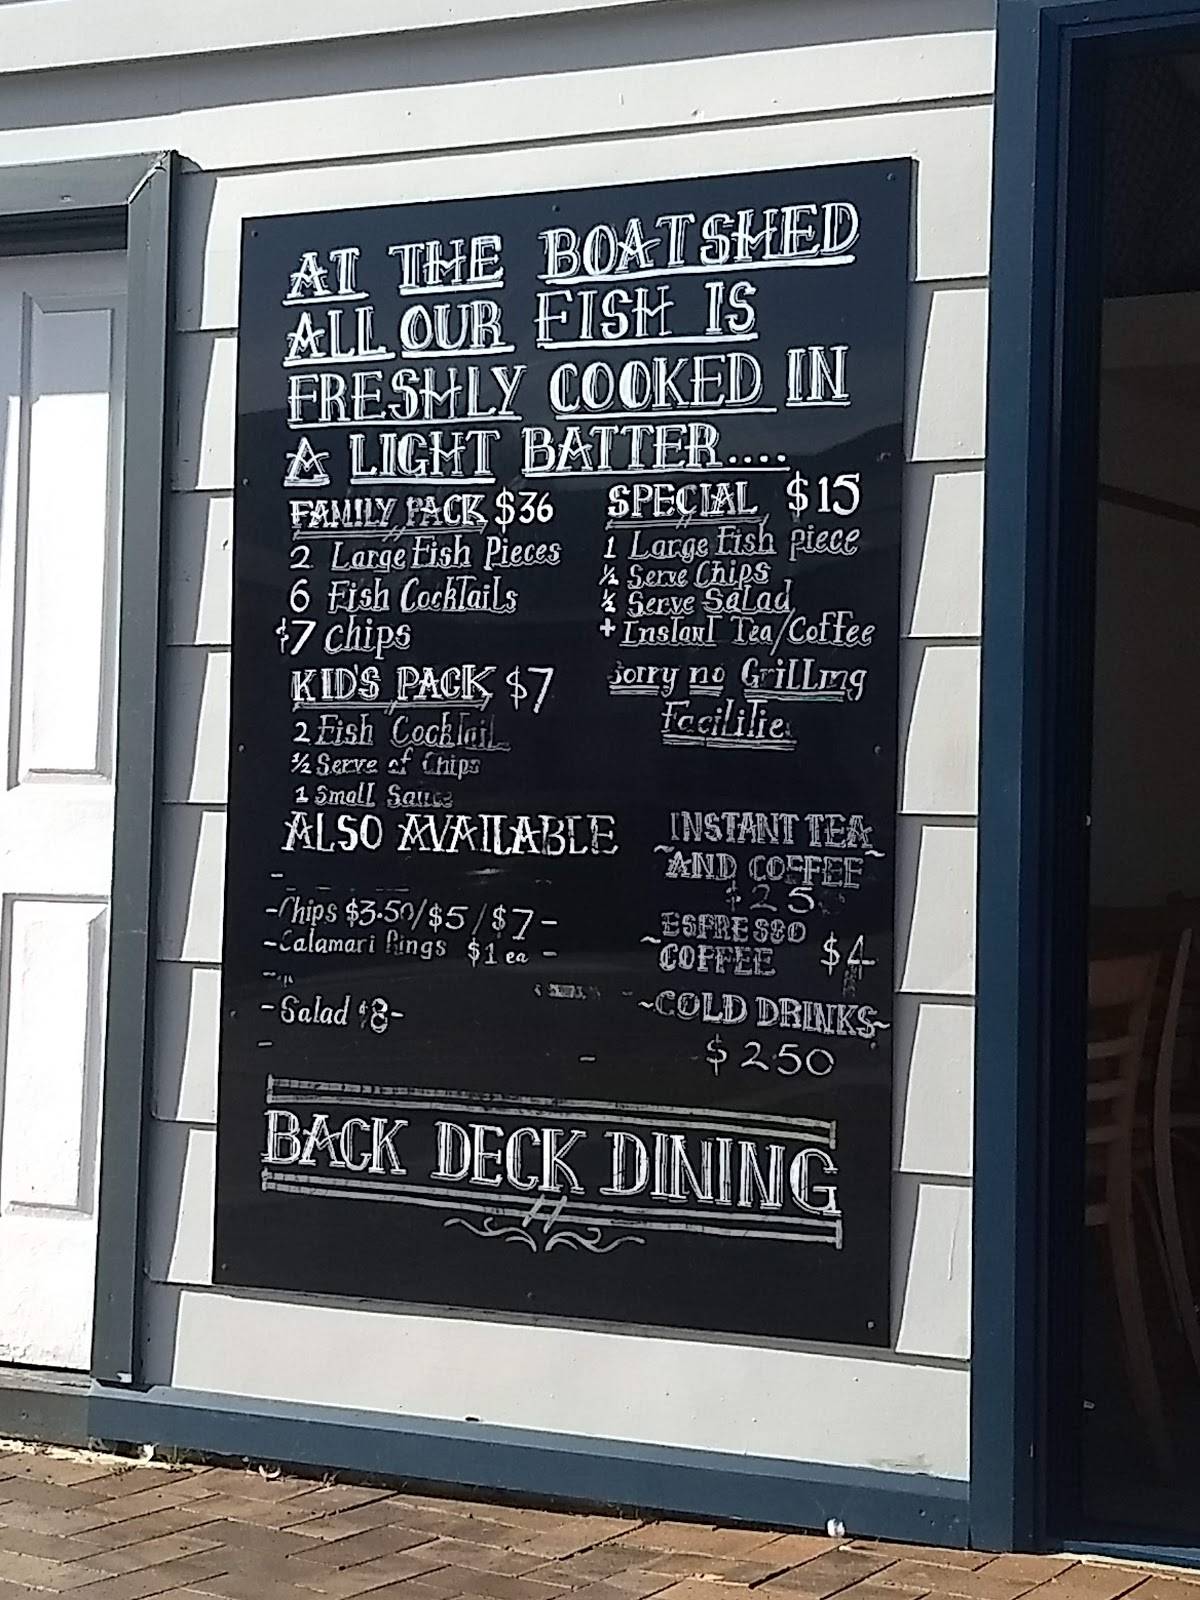 AT THE BOATSHED
ALL OUR FISH IS
FRESHLY COOKED IN
A LIGHT BATTER....
FAMILY PACK $36
2 Large Fish Pieces
6 Fish Cocktails
$7 Chips
KID'S PACK $7
2 Fish Cocktail
½ Serve of Chips
1 Small Sauce
SPECIAL $15
1 Large Fish piece
½ Serve Chips
½ Serve Salad
+ Instant Tea/Coffee
Sorry no Grilling
Facilities
ALSO AVAILABLE
-Chips $3.50/$5/$7-
-Calamari Rings $1 ea -
-Salad $8-
INSTANT TEA
~AND COFFEE~
~ESPRESSO
COFFEE $4
~COLD DRINKS~
$2.50
BACK DECK DINING